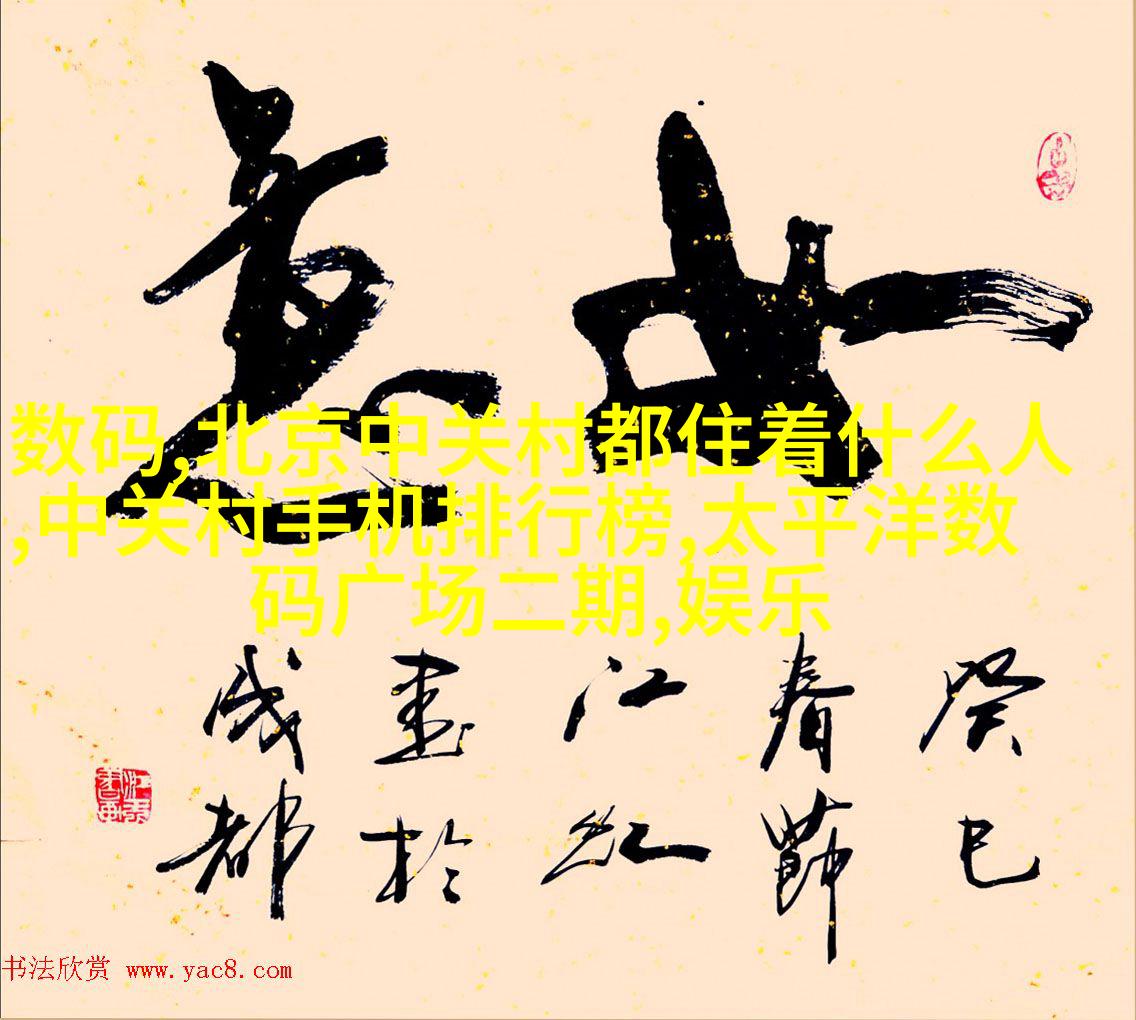 如意
数码,北京中关村都住着什么人
,中关村手机排行榜,太平洋数
码广场二期,娱乐
癸巳
春節
江
書於
成都
书法欣赏 www.yac8.com